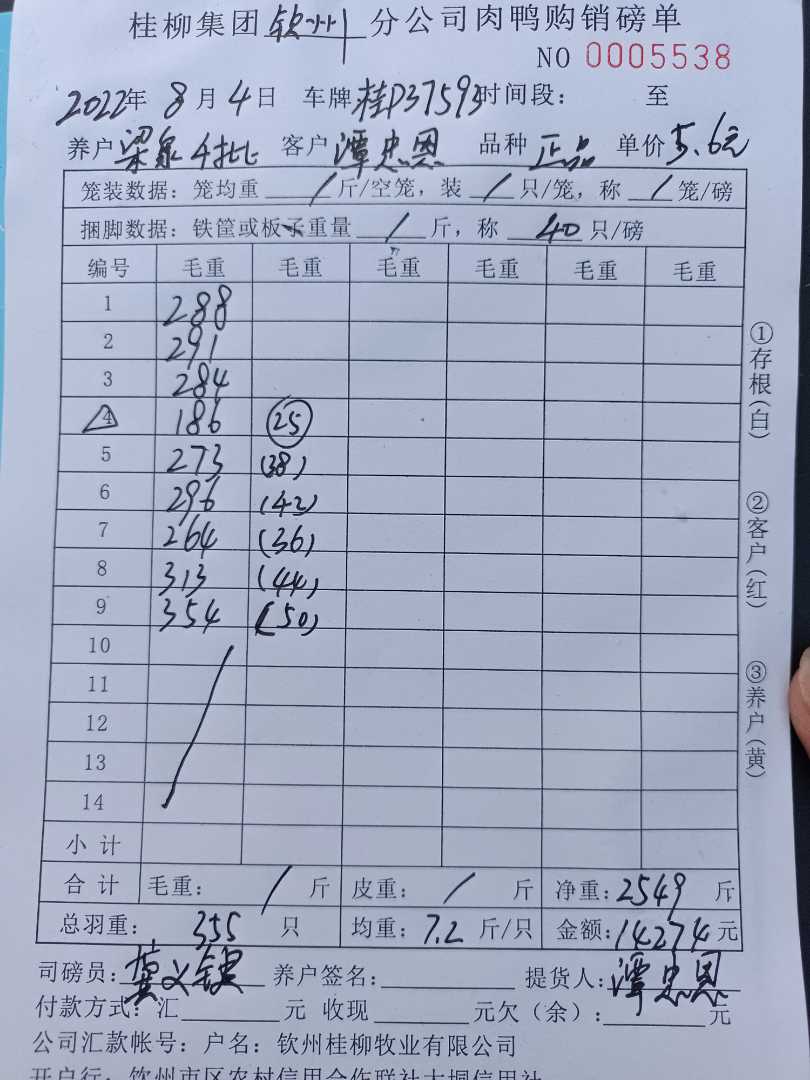 桂柳集团钦州分公司肉鸭购销磅单
NO 0005538
2022年 8月4日 车牌桂D37593时间段: 至
养户梁泉4批 客户潭忠恩 品种正品 单价5.6元
笼装数据: 笼均重 / 斤/空笼, 装 / 只/笼, 称 / 笼/磅
捆脚数据: 铁筐或板子重量 / 斤, 称 40 只/磅
编号 毛重 毛重 毛重 毛重 毛重 毛重
1 288
2 291
3 284
4 186 25
5 273 (38)
6 296 (42)
7 264 (36)
8 313 (44)
9 354 (50)
10
11
12
13
14
小计
合计 毛重: / 斤 皮重: / 斤 净重: 2549 斤
总羽重: 355 只 均重: 7.2 斤/只 金额: 14274 元
司磅员: 养户签名: 提货人: 潭忠恩
付款方式: 汇 元 收现 元欠(余): 元
公司汇款帐号: 户名: 钦州桂柳牧业有限公司
开户行: 钦州市区农村信用合作联社大垌信用社
①存根(白)
②客户(红)
③养户(黄)